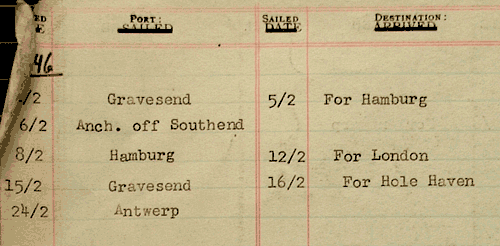 PORT: SAILED DESTINATION:
SAILED DATE ARRIVED
46
/2 Gravesend 5/2 For Hamburg
6/2 Anch. off Southend
8/2 Hamburg 12/2 For London
15/2 Gravesend 16/2 For Hole Haven
24/2 Antwerp